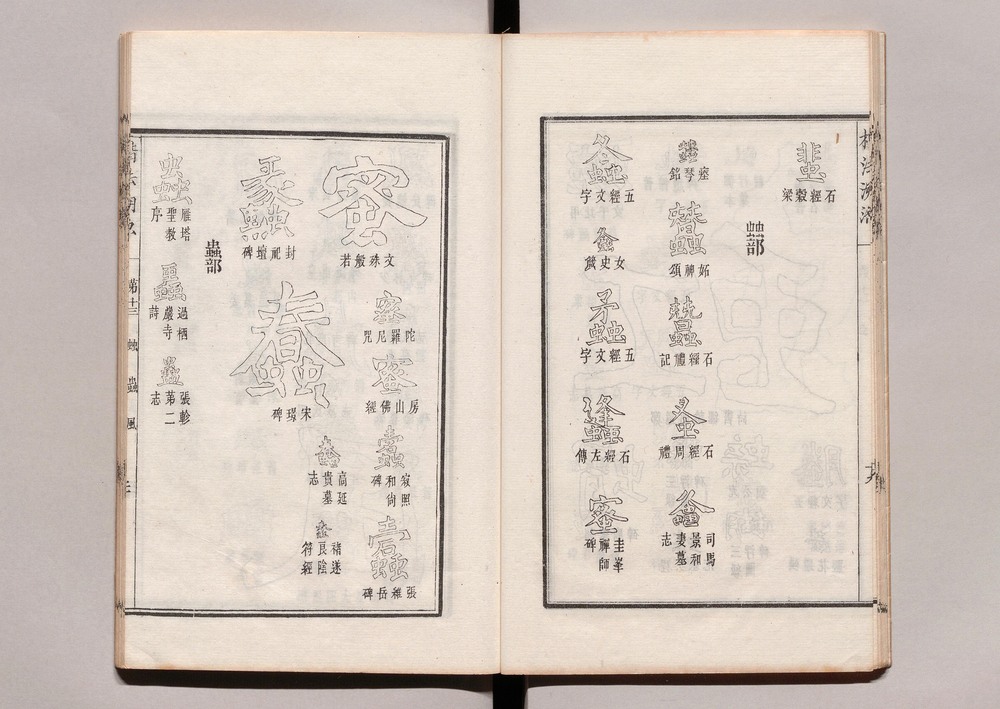 楷法溯源
蜚
石經穀梁
䖵部
瘞琴銘
蠶
妬神頌
蠶
石經禮記
蚤
石經周禮
司馬
景和
妻墓
志
螽
五經文字
螽
女史箴
蟊
五經文字
石經左傳
蜜
圭峯
禪師
碑
蜜
文殊般若
蜜
陀羅尼咒
蜜
房山佛經
蠹
寂照
和尚
碑
蠹
張維岳碑
蠡
封祀壇碑
蠢
宋璟碑
蠢
高延
貴墓
志
褚遂
良陰
符經
蟲部
雁塔
聖教
序
過栖
巖寺
詩
張軫
第二
志
第十三
䖵
蟲
風